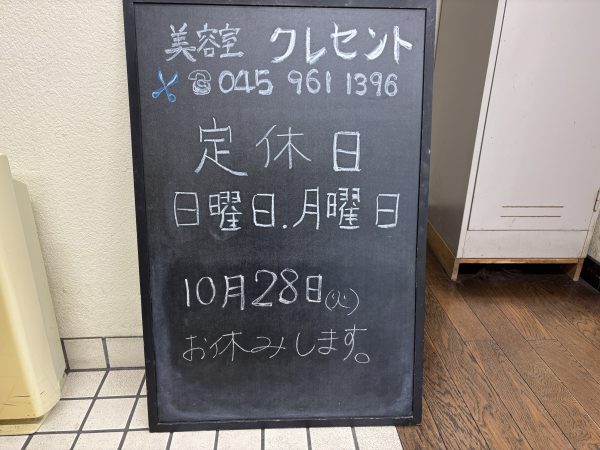 美容室 クレセント
☎ 045 961 1396
定休日
日曜日.月曜日
10月28日(火)
お休みします。